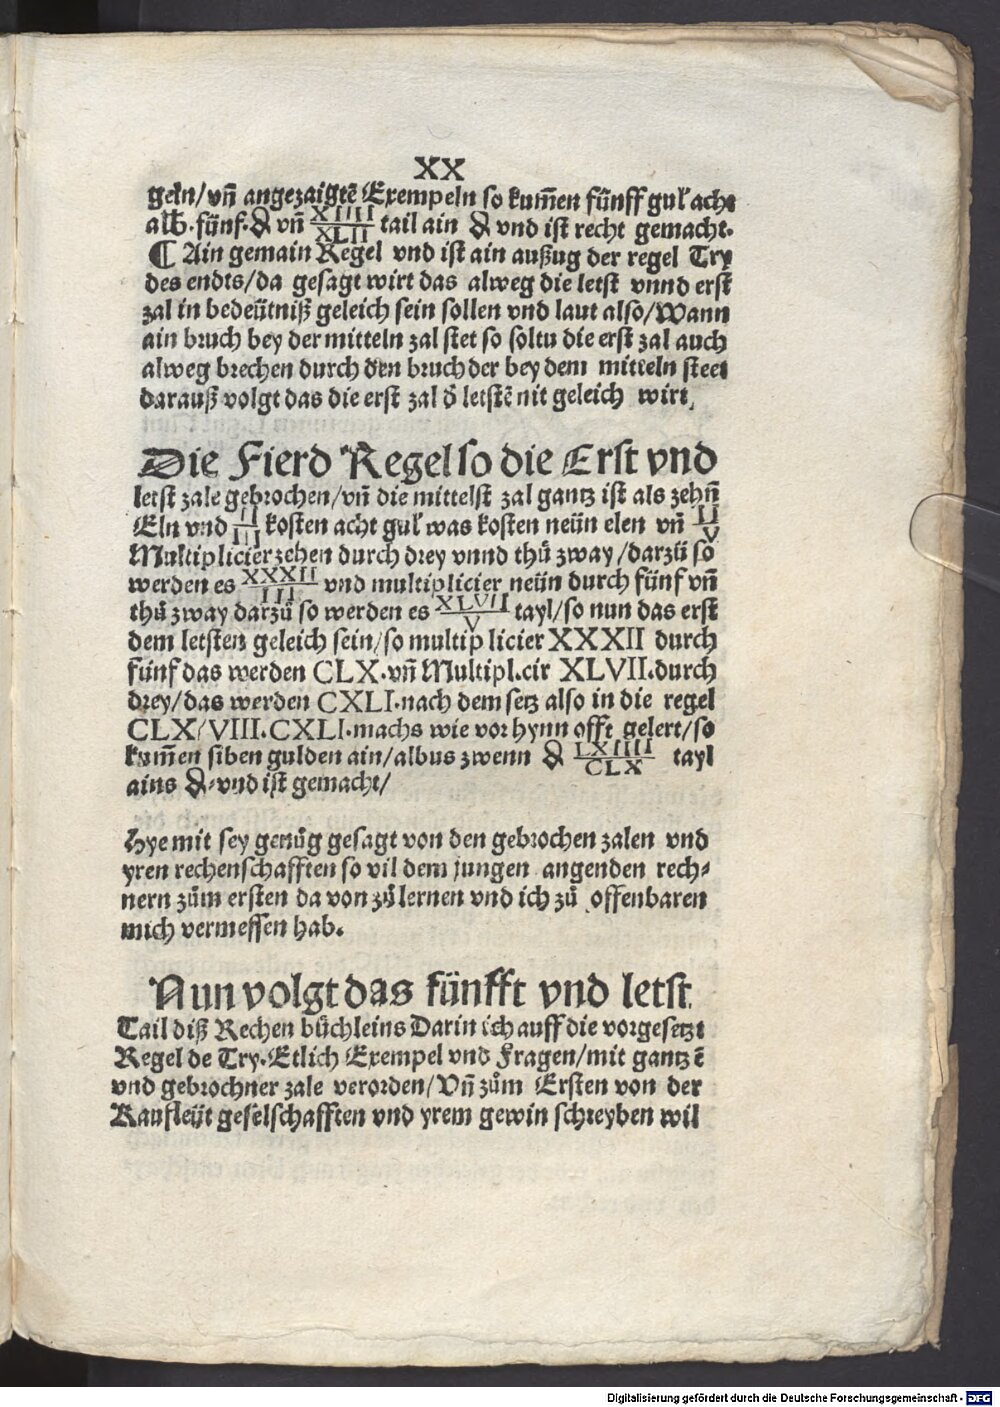 XX
geln/vñ angezaigtẽ Exempeln so kum̃en fünff gul̃ acht
alb̃.fünf.₰ vñ XIIII/XLII tail ain ₰ vnd ist recht gemacht.
¶ Ain gemain Regel vnd ist ain außug der regel Try
des endts/da gesagt wirt das alweg die letst vnnd erst
zal in bedeütniß geleich sein sollen vnd laut also/Wann
ain bruch bey der mitteln zal stet so soltu die erst zal auch
alweg brechen durch den bruch der bey dem mitteln steet
darauß volgt das die erst zal d̃ letstẽ nit geleich wirt.
Die Fierd Regel so die Erst vnd
letst zale gebrochen/vñ die mittelst zal gantz ist als zehñ
Eln vnd II/III kosten acht gul̃ was kosten neün elen vñ II/V
Multiplicier zehen durch drey vnnd thů zway/darzů so
werden es XXXII/III vnd multiplicier neün durch fünf vñ
thů zway darzů so werden es XLVII/V tayl/so nun das erst
dem letsten geleich sein/so multiplicier XXXII durch
fünf das werden CLX.vñ Multipl.cir XLVII.durch
drey/das werden CXLI.nach dem setz also in die regel
CLX/VIII.CXLI.machs wie vor hynn offt gelert/so
kum̃en siben gulden ain/albus zwenn ₰ LXIIII/CLX tayl
ains ₰.vnd ist gemacht/
Hye mit sey genůg gesagt von den gebrochen zalen vnd
yren rechenschafften so vil dem jungen angenden rech⸗
nern zům ersten da von zů lernen vnd ich zů offenbaren
mich vermessen hab.
Nun volgt das fünfft vnd letst
Tail diß Rechen büchleins Darin ich auff die vorgesetzt
Regel de Try.Etlich Exempel vnd Fragen/mit gantzẽ
vnd gebrochner zale verorden/Vñ zům Ersten von der
Kaufleüt geselschafften vnd yrem gewin schreyben wil
Digitalisierung gefördert durch die Deutsche Forschungsgemeinschaft - DFG